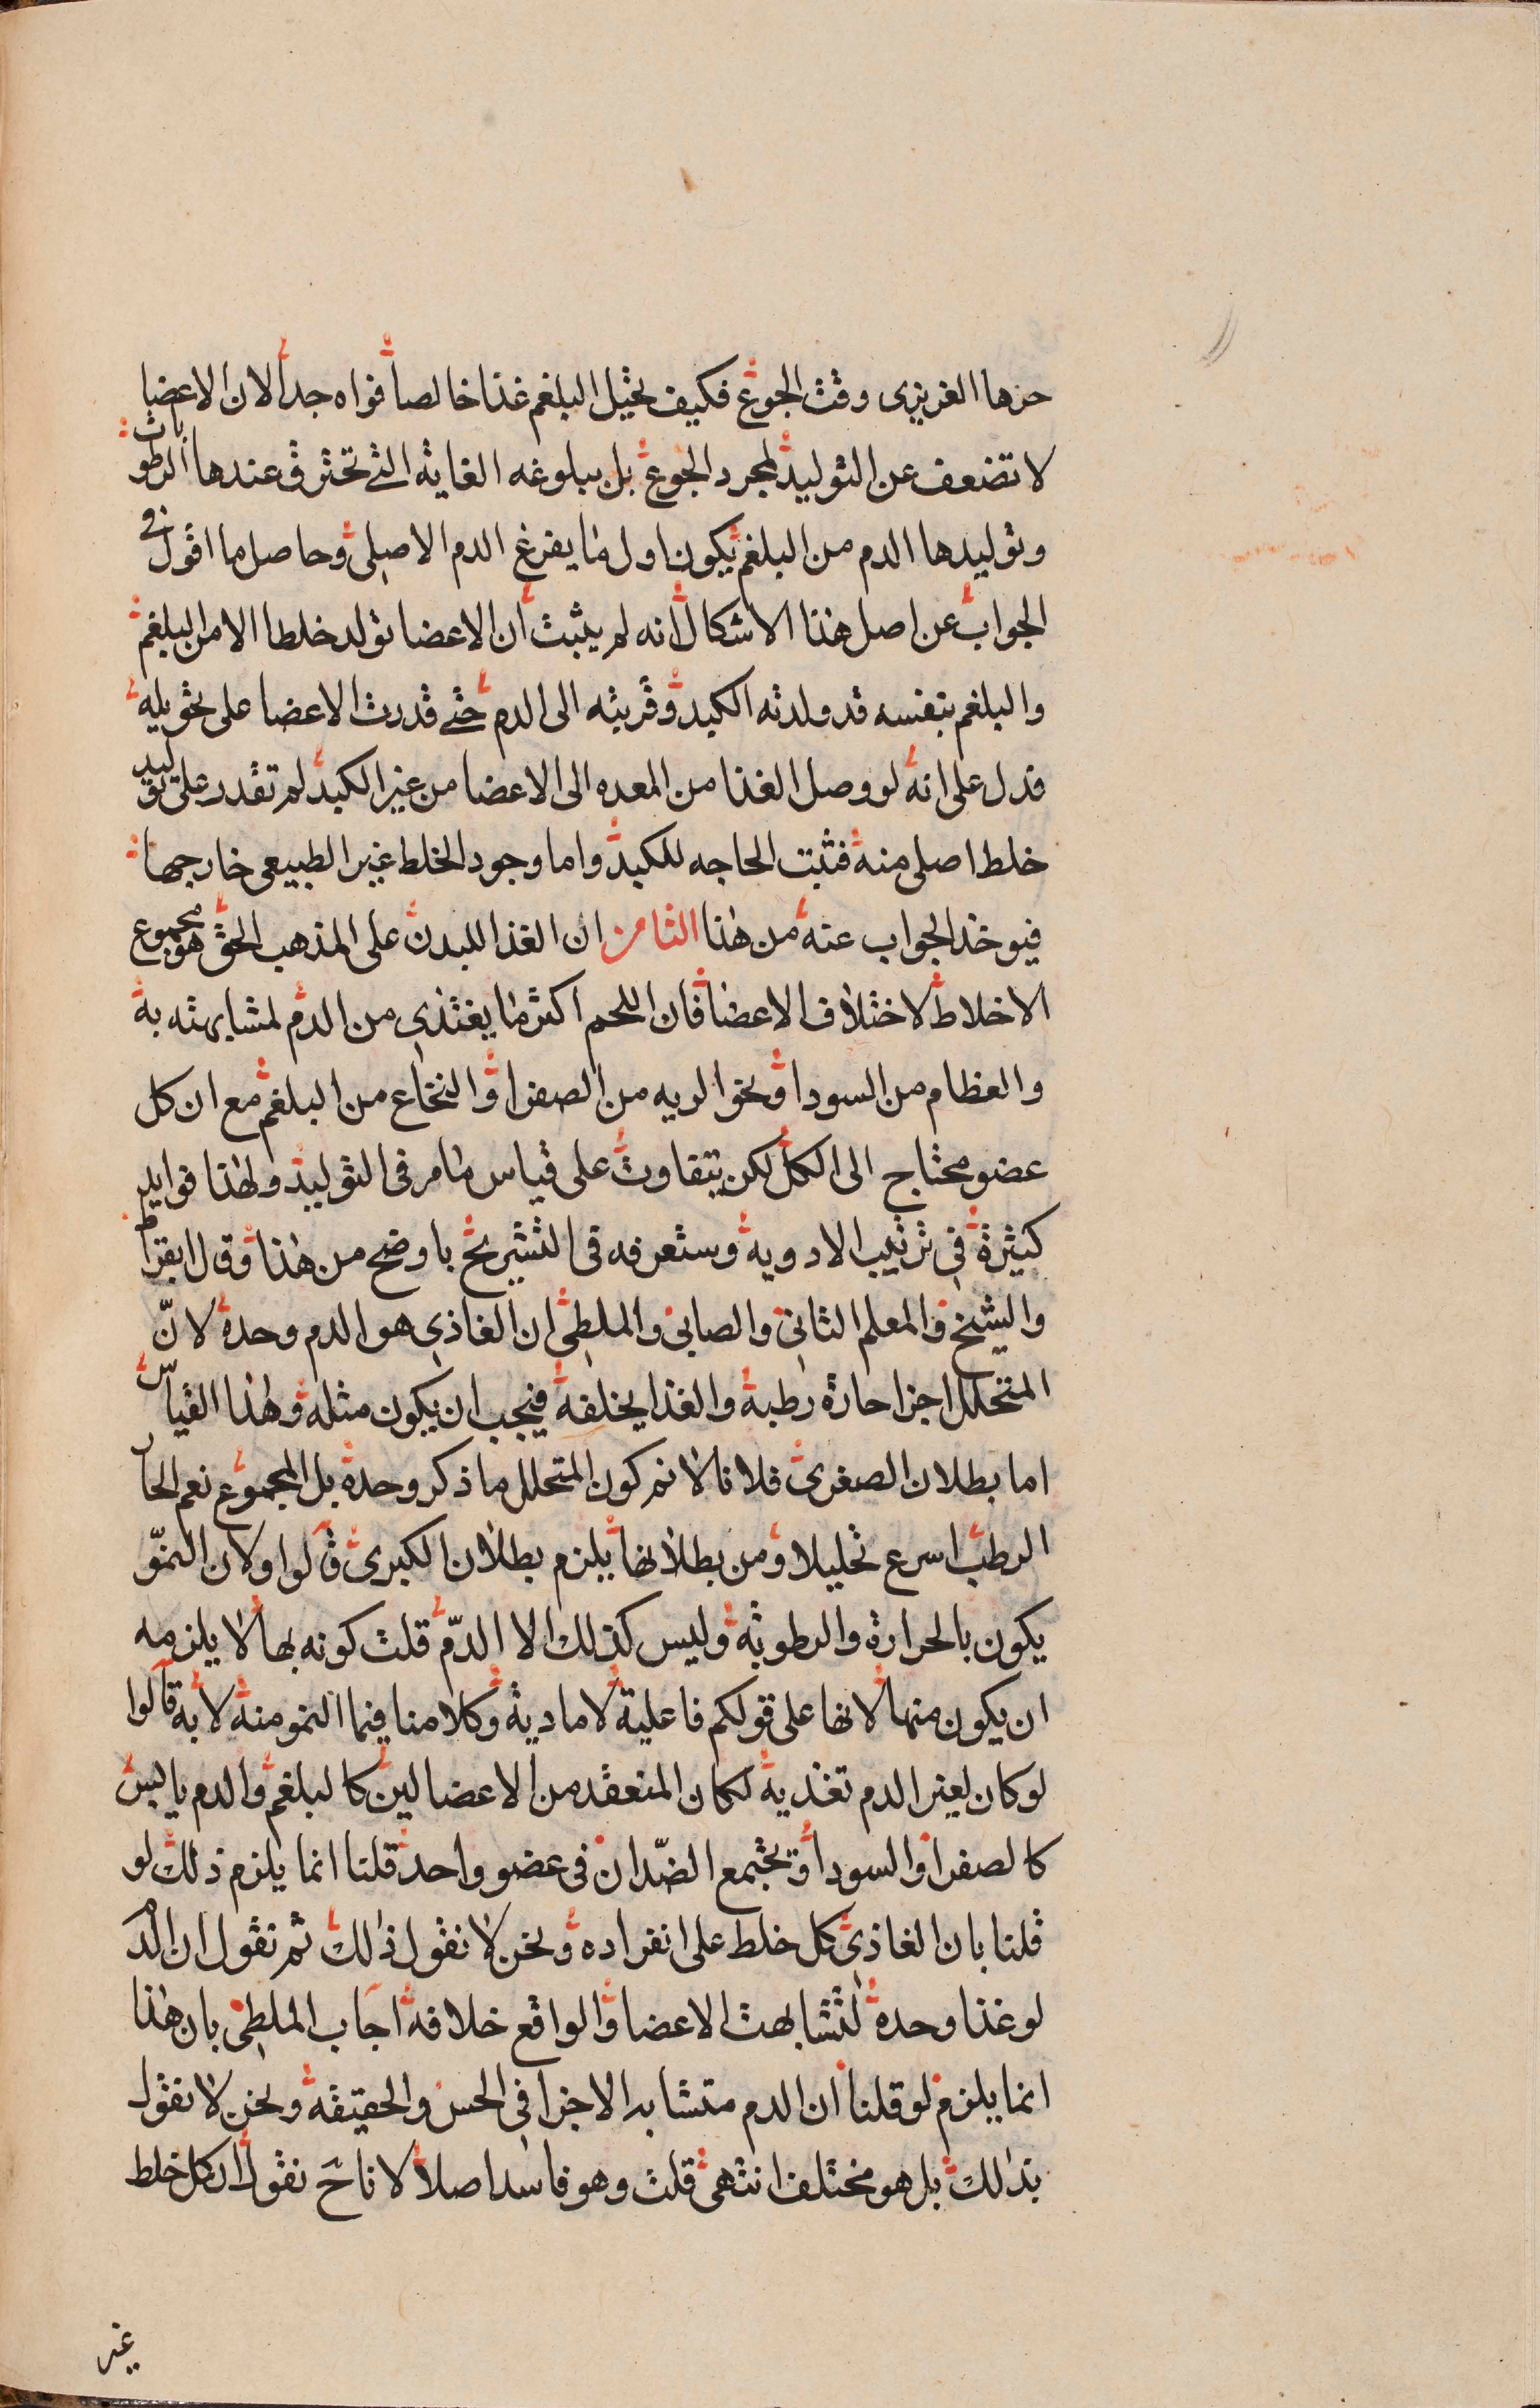 حرها الغريزى وقت الجوع فكيف تحيل البلغم غذا خالصا فواه جدا لان الاعضا
لا تضعف عن التوليد لمجرد الجوع بل ببلوغه الغاية التى تحترق عندها الرطوبات
وتوليدها الدم من البلغم يكون اول ما يفرغ الدم الاصلى وحاصل ما اقول فى
الجواب عن اصل هذا الاشكال انه لم يثبت ان الاعضا تولد خلطا الا من البلغم
والبلغم بنفسه قد ولدته الكبد وقربته الى الدم حتى قدرت الاعضا على تحويله
فدل على انه لو وصل الغذا من المعده الى الاعضا من غير الكبد لم تقدر على توليد
خلط اصلى منه فثبت الحاجه للكبد واما وجود الخلط غير الطبيعى خارجها
فيوخذ الجواب عنه من هذا الثامن ان الغذا للبدن على المذهب الحق هو مجموع
الاخلاط لاختلاف الاعضا فان اللحم اكثر ما يغتذى من الدم لمشابهته به
والعظام من السودا ونحو الريه من الصفرا والنخاع من البلغم مع ان كل
عضو محتاج الى الكل لكن يتفاوت على قياس ما مر فى التوليد ولهذا فوايد
كثيرة فى ترتيب الادوية وستعرفه فى التشريح باوضح من هذا وقال ابقراط
والشيخ والمعلم الثانى والصابى والملطى ان الغاذى هو الدم وحده لانّ
المتحلل اجزا حارة رطبة والغذا يخلفه فيجب ان يكون مثله وهذا القياس
اما بطلان الصغرى فلانا لا نم كون المتحلل ما ذكر وحده بل المجموع نعم الحار
الرطب اسرع تحليلا ومن بطلانها يلزم بطلان الكبرى قالوا ولان النموّ
يكون بالحرارة والرطوبة وليس كذلك الا الدّم قلت كونه بها لا يلزمه
ان يكون منها لانها على قولكم فاعلية لا مادية وكلامنا فيما النمو منه لا به قالوا
لو كان لغير الدم تغذية لكان المنعقد من الاعضا لين كالبلغم والدم يابس
كالصفرا والسودا ويجتمع الضّدان فى عضو واحد قلنا انما يلزم ذلك لو
قلنا بان الغاذى كل خلط على انفراده ونحن لا نقول ذالك ثم نقول ان الدم
لو غذا وحده لتشابهت الاعضا والواقع خلافه اجاب الملطى بان هذا
انما يلزم لو قلنا ان الدم متشابه الاجزا فى الحس والحقيقة ونحن لا نقول
بذالك بل هو مختلف انتهى قلت وهو فاسد اصلا لانا ح نقول ان كل خلط
غير